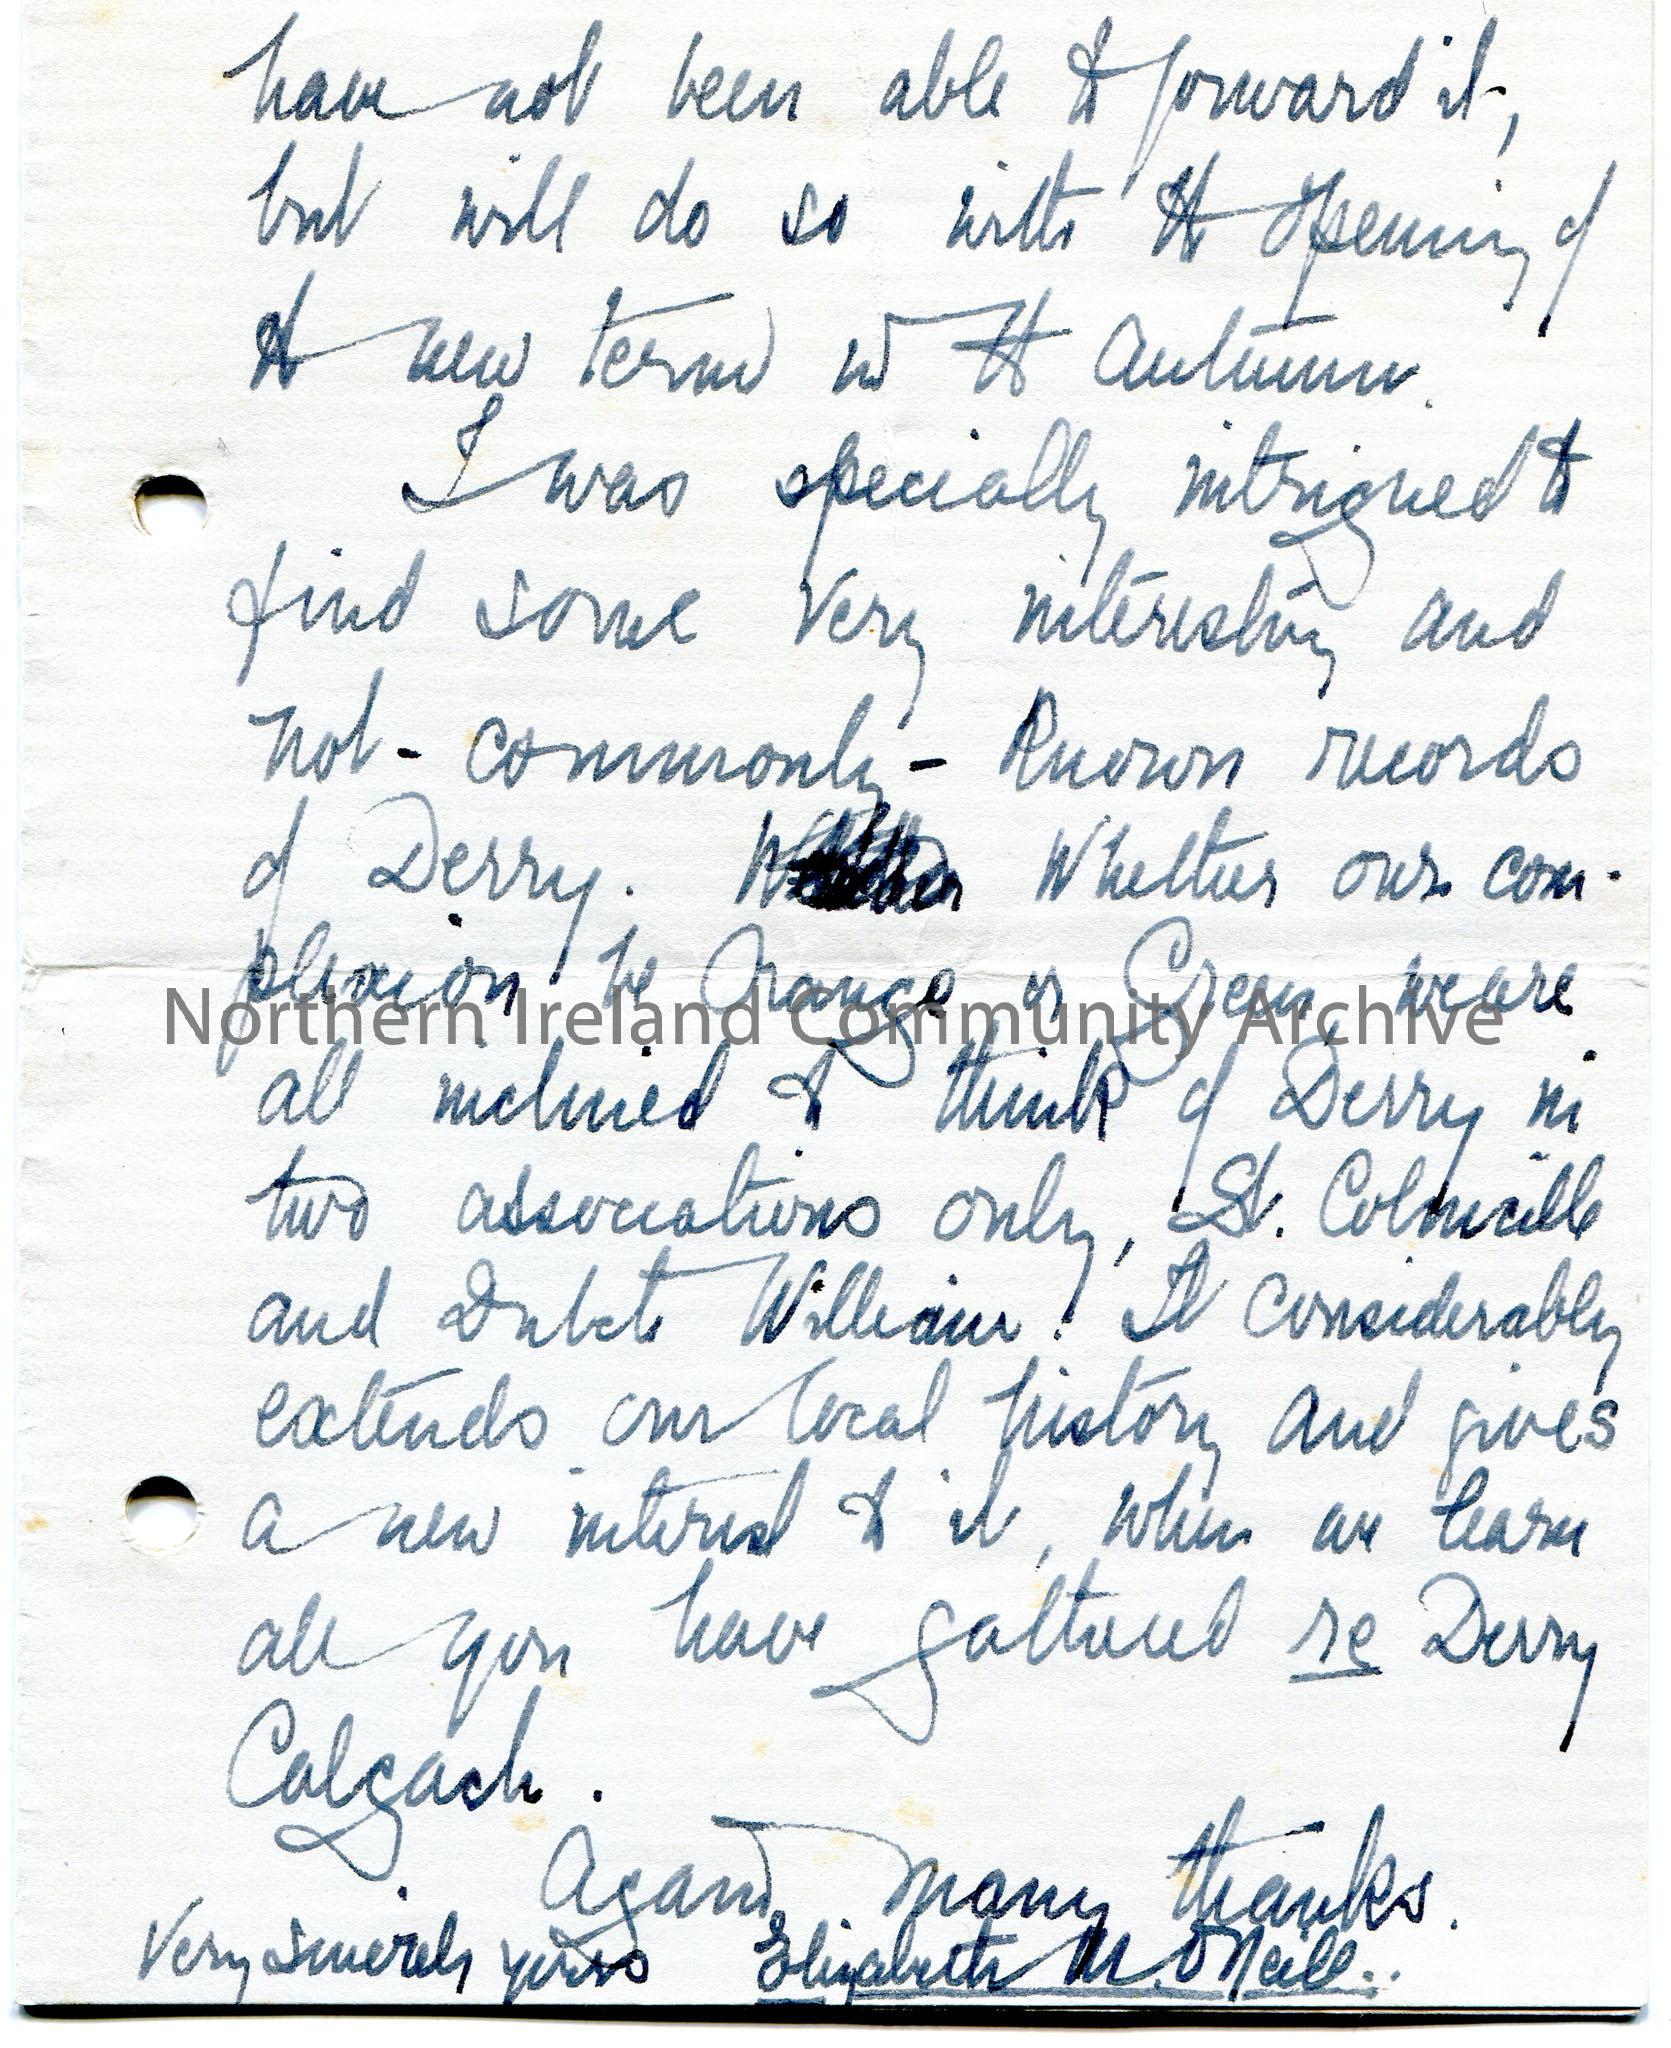 have not been able to forward it,
but will do so with the opening of
the new term in the Autumn.
I was specially intrigued to
find some very interesting and
not-commonly-known records
of Derry. Whether our com-
plexion be Orange or Green, we are
Northern Ireland Community Archive
all inclined to think of Derry in
two associations only, St. Colmcille
and Dutch William! It considerably
extends our local history and gives
a new interest to it, when we learn
all you have gathered re Derry
Calgach.
Again many thanks.
Very sincerely yours Elizabeth M. O'Neill..